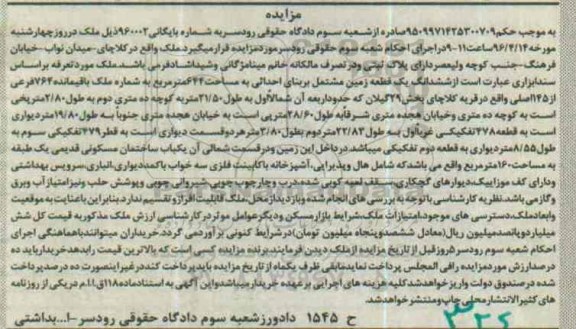 مزایده
به موجب حکم ۹۵۰۹۹۷۱۴۲۵۳۰۰۷۰۹ صادره از شعبه سوم دادگاه حقوقی رودسر به شماره بایگانی ۹۶۰۰۰۲ ذیل ملک در روز چهارشنبه
مورخه ۹۶/۴/۱۴ ساعت ۱۱-۹ در اجرای احکام شعبه سوم حقوقی رودسر مورد مزایده قرار میگیرد. ملک واقع در کلاچای-میدان نواب-خیابان
فرهنگ-جنب کوچه ولیعصر دارای پلاک ثبتی ودر تصرف مالکانه خانم مینا مژگانی وشیدا شادفر می باشد. ملک مورد تعرفه براساس
سند ابزاری عبارت است از ششدانگ یک قطعه زمین مشتمل بر بنای احداثی به مساحت ۶۴۴ متر مربع به شماره ملک باقیمانده ۷۶۴ فرعی
از ۱۴۵ اصلی واقع در قریه کلاچای بخش ۲۹ گیلان که حدود اربعه آن شمالاً اول به طول ۲۱/۵۰ متر به کوچه ده متری دوم به طول ۲/۸۰ متر پخی
است به کوچه ده متری وخیابان هجده متری شرقاً به طول ۲۸/۶۰ متر پی است به خیابان هجده متری جنوباً به طول ۱۹/۸۰ متر دیواری
است به قطعه ۴۷۸ تفکیکی غرباً اول به طول ۲۲/۸۳ متر دوم بطول ۳/۸۰ متر هر دو قسمت دیواری است به قطر ۴۷۹ تفکیکی سوم به
طول ۸/۵۵ متر دیواری به قطعه دوم تفکیکی میباشد در داخل این زمین ودر قسمت شمالی آن یکباب ساختمان مسکونی قدیمی یک طبقه
به مساحت ۱۶۰ متر مربع واقع می باشد که شامل هال وپذیرایی، آشپزخانه با کابینت فلزی سه خواب با کمد دیواری، انباری، سرویس بهداشتی
ودارای کف موزاییک دیوارهای گچکاری، سقف لمبه کوبی شده درب وچارچوب چوبی-شیروانی چوبی وپوشش حلب ونیز امتیاز آب وبرق
وگاز می باشد. نظریه کارشناسی با توجه به بررسی های انجام شده وبازدید از محل، ملک قابلیت افراز و تقسیم ندارد. بنابراین با عنایت به موقعیت
وابعاد ملک، دسترسی های موجود، امتیازات ملک، شرایط بازار مسکن ودیگر عوامل موثر در کارشناسی ارزش ملک مذکور به قیمت کل شش
میلیارد وپانصد میلیون ریال (معادل ششصد وپنجاه میلیون تومان) در شرایط کنونی برآورد می گردد. خریداران میتوانند با هماهنگی اجرای
احکام شعبه سوم رودسر ۵ روز قبل از تاریخ مزایده از ملک دیدن فرمایند. برنده مزایده کسی است که بالاترین قیمت را بدهد خریدار باید ده
درصد ارزش مورد مزایده را فی المجلس پرداخت نماید مابقی ظرف یکماه از تاریخ مزایده باید پرداخت کند در غیر اینصورت ده درصد پرداخت
شده در صندوق دولت واریز خواهد شد کلیه هزینه های اجرایی بر عهده خریدار میباشد واین آگهی به استناد ماده ۱۱۸ ق.ا.ا.م در یکی از روزنامه
های کثیرالانتشار محلی چاپ ومنتشر خواهد شد.
ح ۱۵۴۵ دادورز شعبه سوم دادگاه حقوقی رودسر-ا...بداشتی